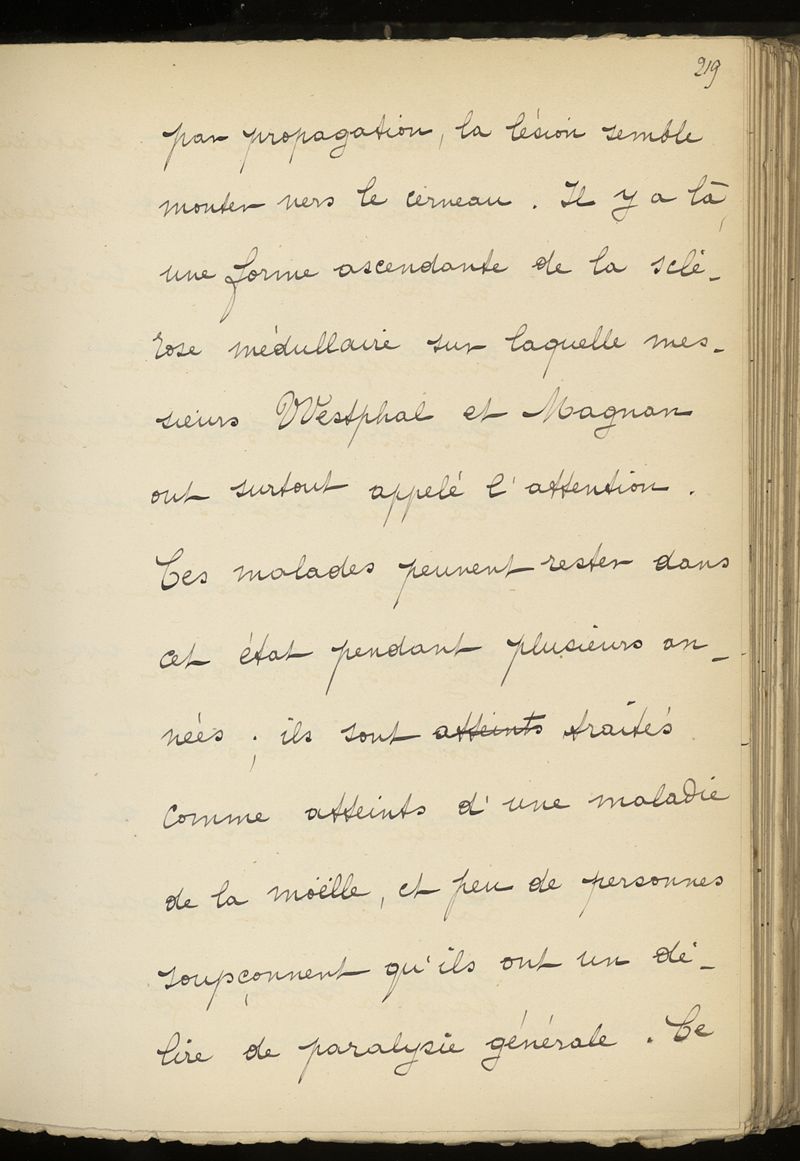 219
par propagation, la lésion semble
monter vers le cerveau. Il y a là,
une forme ascendante de la sclé-
rose médullaire sur laquelle mes-
sieurs Westphal et Magnan
ont surtout appelé l'attention.
Ces malades peuvent rester dans
cet état pendant plusieurs an-
nées ; ils sont atteints traités
comme atteints d'une maladie
de la moëlle, et peu de personnes
soupçonnent qu'ils ont un dé-
lire de paralysie générale. Ce